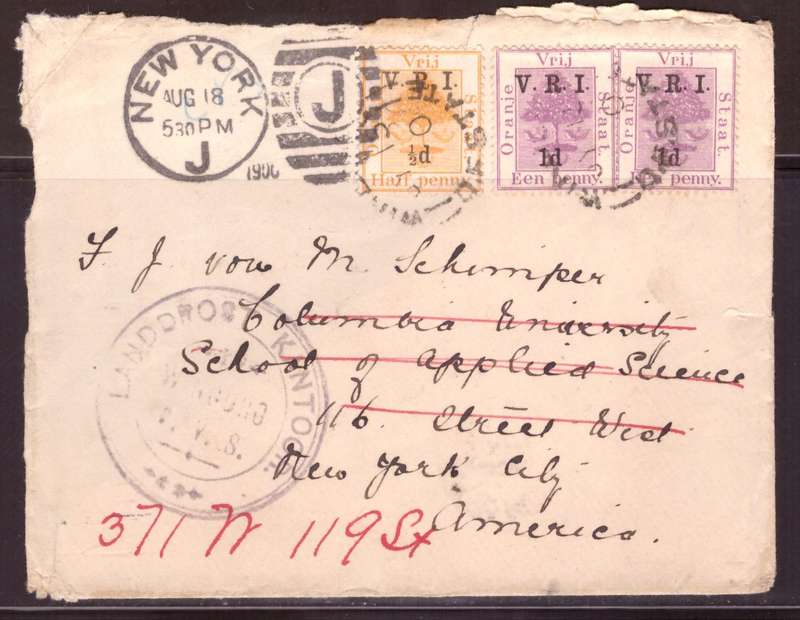 NEW YORK
AUG 18
530PM
J
1900
J
Vrij
V. R. I.
½d
Half penny
Vrij
Oranje
V. R. I.
Staat.
1d
Een penny.
Vrij
Oranje
V. R. I.
Staat.
1d
penny.
STATE
F. J. von M. Schimper
Columbia University
School of Applied Science
116. Street West
New York City
America.
371 W 119 St
LANDDROST KANTOOR
O. V. S.